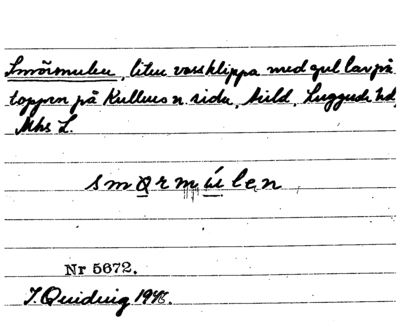 Smörmulen, liten vass klippa med gul lav på
toppen på Kullens n. sida, Arild, Luggude hd,
Mhs L.
smørmúlen
Nr 5672.
I. Quiding 1946.